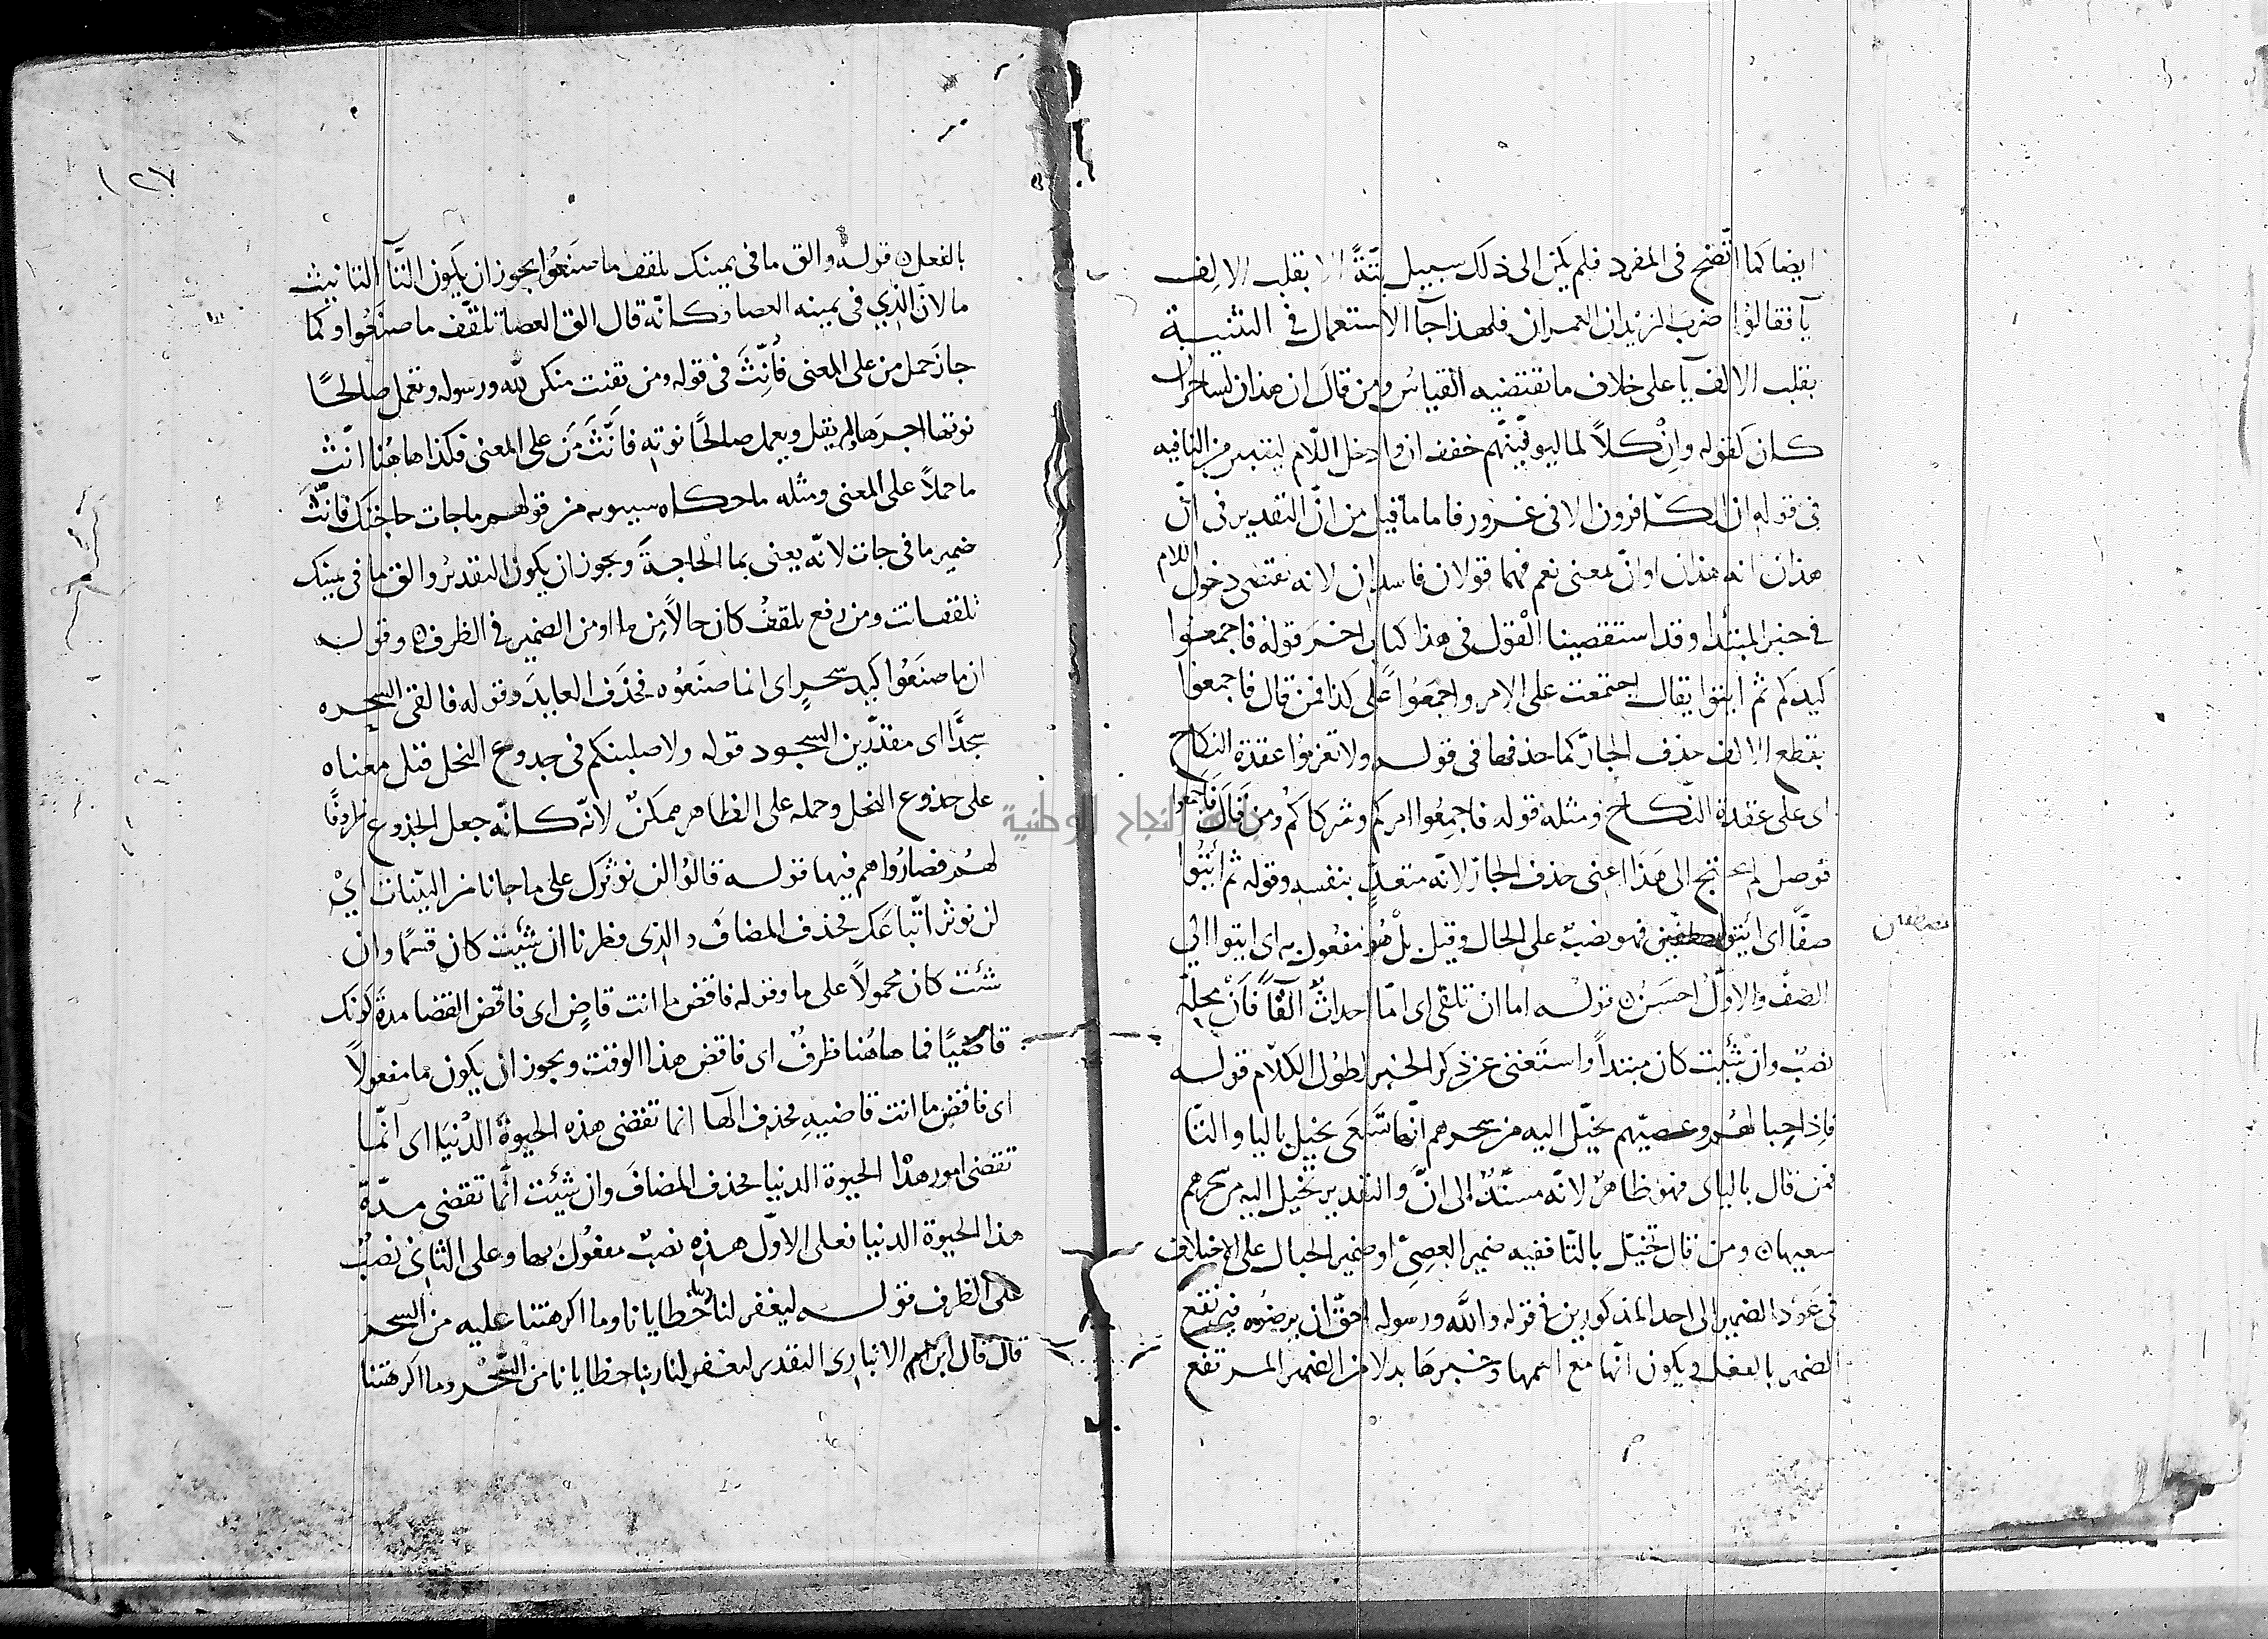 ايضا كما اتّضح فى المفرد فلم يكن الى ذلك سبيل بتّةً الا بقلب الالف
يآ فقالوا ضرب الزيدان العمران فلهذا جآ الاستعمال فى التثنية
بقلب الالف يآ على خلاف ما يقتضيه القياس ومن قال ان هذان لساحران
كان كقوله وانْ كلاً لما ليوفينّهم خفف ان وادخل اللّام ليتبين من النافيه
فى قوله ان الكافرون الا فى غرور فاما ما قيل من انّ التقدير فى انّ
هذان انه هذان او انّ بمعنى نعم فهما قولان فاسدان لانه يقتضى دخول اللام
فى خبر المبتدا وقد استقصينا القول فى هذا كتاب اخر قوله فاجمعوا
كيدكم ثم ايتوا يقال اجتمعت على الامر واجمعوا على كذا فمن قال فاجمعوا
بقطع الالف حذف الجارّ كما حذفها فى قوله ولا تعزموا عقدة النكاح
اى على عقدة النّكاح ومثله قوله فاجمِعُوا امركم وشركاكم ومن قال فاجمعوا
فوصل لم يحتج الى هذا اعنى حذف الجارّ لانّه متعدٍّ بنفسه وقوله ثم ائتوا
صفّا اى ائتوا مصطفين فهو نصبٌ على الحال وقيل بل هو مفعول به اى ايتوا الى
الصفّ والاوّل احسن قوله اما ان تلقى اى امّا احداثٌ القاً فانْ محله
نصبٌ وان شئت كان مبتداً واستغنى عن ذكر الخبر لطول الكلام قوله
فاذا حبالهم وعصيّهم يخيّل اليه من سحرهم انّها تسعى يخيل باليا والتّا
فمن قال بالياى فهو ظاهرٌ لانّه مسنّدٌ الى انّ والتقدير تخيل اليه من سحرهم
سعيها ومن قال تخيّل بالتّا ففيه ضمير العصىّ او ضمير الحبال على الاختلاف
فى عود الضمير الى احد المذكورين فى قوله والله ورسوله احقّ ان يرضوه فيرتفع
الضمير بالفعل ويكون انّها مع اسمها وخبرها بدلا من الضمير المرتفع
مصطفين
١٢٧
بالفعل قوله والق ما فى يمينك تلقف ما صنعوا يجوز ان يكون التّآ التانيث
ما لانّ الذي فى يمينه العصا وكانّه قال الق العصا تلقّف ما صنعُوا وكما
جاز حمل من على المعنى فأنِّثَ فى قوله ومن تقنت منكن لله ورسوله وتعمل صالحًا
نوتها اجرها ولم يقل ويعمل صالحًا نوته فانّثَ مَن على المعنى فكذا هاهُنا انّث
ما حملاً على المعنى ومثله ما حكاه سيبويه من قولهم ما جات حاجتك فانّثَ
ضمير ما فى جات لانّه يعنى بما الحاجةَ ويجوز ان يكون التقديرُ والق ما فى يمينك
تلقف انت ومن رفع تلقفُ كان حالاً من ما او من الضمير فى الظرف وقوله
ان ما صنَعُوا كيد سحرٍ اى انما صنَعُوه فحذَف العايدَ وقوله فالقى السحره
سجّدًا اى مقدّرين السجود قوله ولاصلبنكم فى جدوع النخل قيل معناه
على جذوع النخل وحمله على الظاهر ممكنٌ لانّه كانّه جعل الجذوع ظروفًا
لهُم فصارُوا هم فيها قوله قالوُا لن نؤثرك على ما جانا من البيّنات ايْ
لن نوثر اتّباعك فحذف المضافَ والذى فطرنا ان شئت كان قسمًا وان
شئت كان محمولاً على ما وقوله فاقض ما انت قاضٍ اى فاقض القضا مدة كونك
قاضيًا فما هاهُنا ظرفٌ اى فاقض هذا الوقت ويجوز ان يكون ما مفعولاً
اى فاقضِ ما انت قاضيهِ فحذف الها انما تقضى هذه الحيوةَ الدنيا اى انّما
تقضى امور هذا الحيوة الدنيا فحذف المضافَ وان شئت انّما تقضى مدّة
هذا الحيوة الدنيا فعلى الاوّل هذه نصبٌ مفعُول بها وعلى الثانى نصبٌ
على الظرف قوله ليغفر لنا ربنا خطايانا وما اكرهتنا عليه من السحر
قال قال ابن الانبارى التقدير ليغفر لنا ربنا خطايانا من السّحْر وما اكرهتنا
جامعة النجاح الوطنية